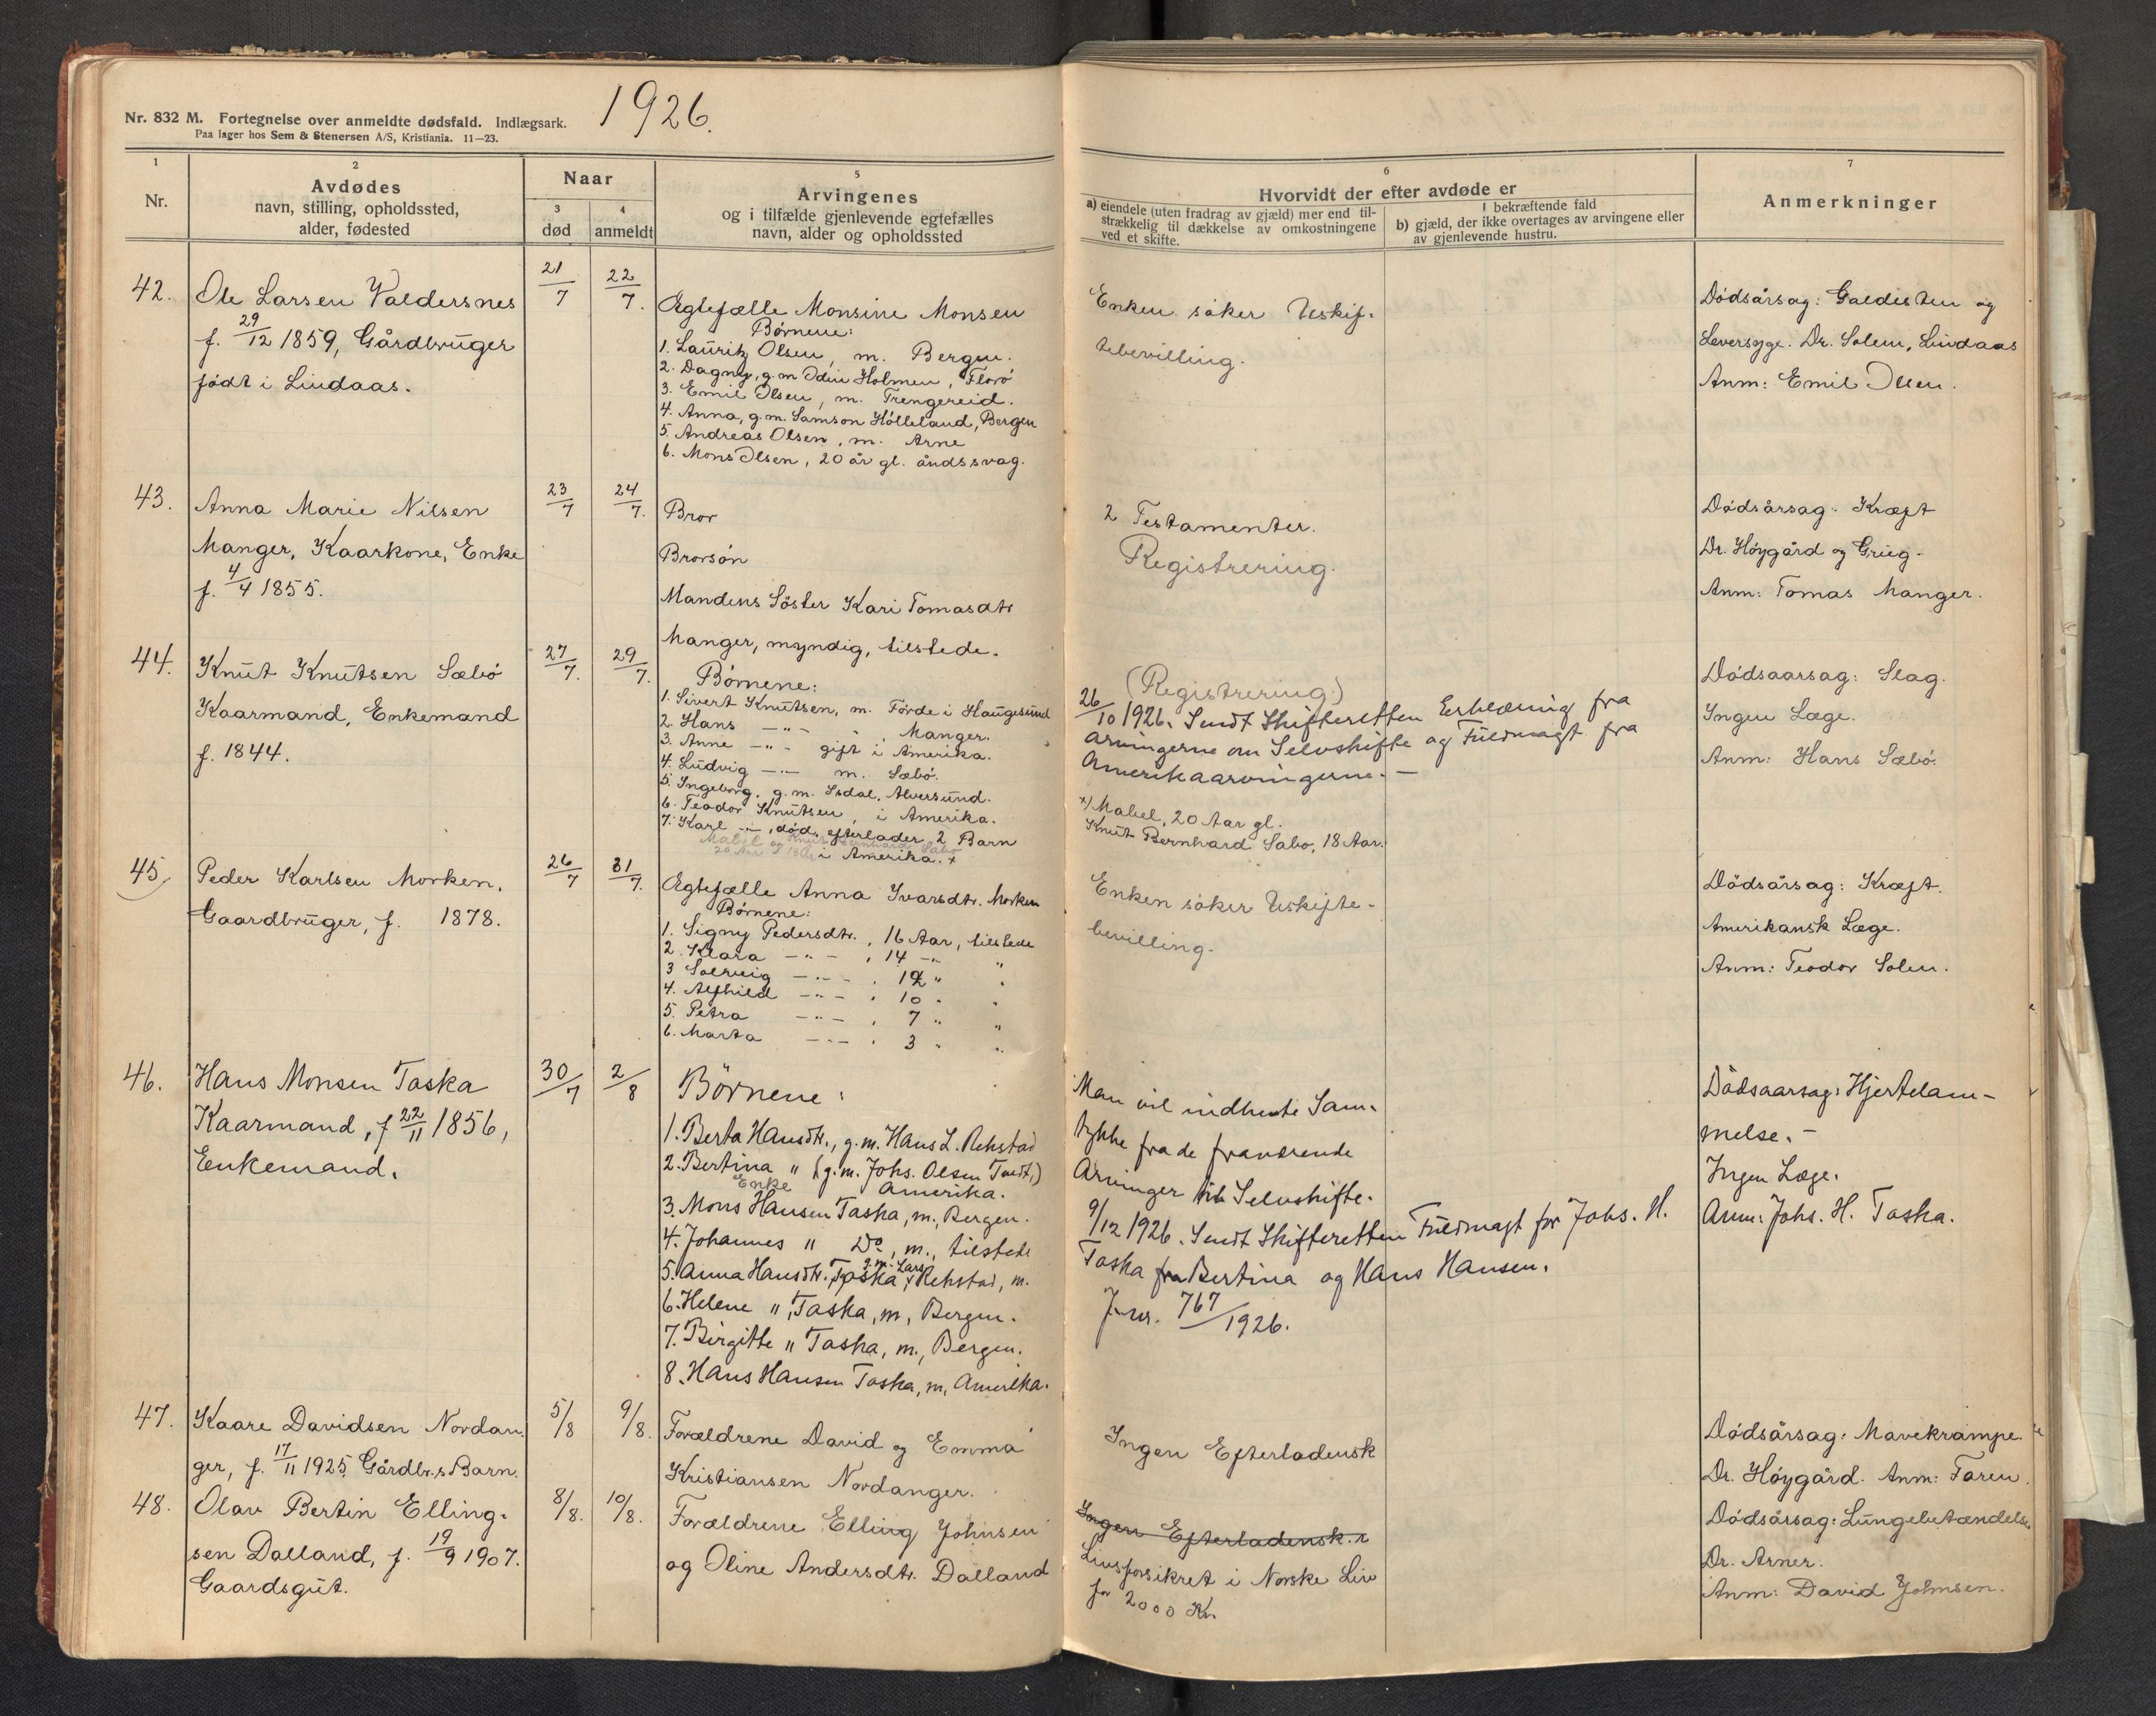 Nr. 832 M. Fortegnelse over anmeldte dødsfald. Indlægsark.
Paa lager hos Sem & Stenersen A/S, Kristiania. 11—23.
1926.
1
Nr.
2
Avdødes
navn, stilling, opholdssted,
alder, fødested
Naar
3
død
4
anmeldt
5
Arvingenes
og i tilfælde gjenlevende egtefælles
navn, alder og opholdssted
6
Hvorvidt der efter avdøde er
a) eiendele (uten fradrag av gjæld) mer end til-
strækkelig til dækkelse av omkostningene
ved et skifte.
I bekræftende fald
b) gjæld, der ikke overtages av arvingene eller
av gjenlevende hustru.
7
Anmerkninger
42.
Ole Larsen Valdersnes
f. 29/12 1859, Gårdbruger
født i Lindaas.
21/7
22/7.
Ægtefælle Monsine Monsen
Børnene:
1. Lauritz Olsen, m. Bergen.
2. Dagny, g.m. Odin Holmen, Florø
3. Emil Olsen, m. Trengereid.
4. Anna, g.m. Samson Hølleland, Bergen
5. Andreas Olsen, m. Arne
6. Mons Olsen, 20 år gl. åndssvag.
Enken søker Uskif-
tebevilling.
Dødsårsag: Galdesten og
Leversyge. Dr. Solem, Lindaas
Anm: Emil Olsen.
43.
Anna Marie Nilsen
Manger, Kaarkone, Enke
f. 4/4 1855.
23/7
24/7.
Bror
Brorsøn
Mandens Søster Kari Tomasdtr
Manger, myndig, tilstede.
2 Testamenter.
Registrering.
Dødsårsag. Kræft
Dr. Høygård og Grieg.
Anm: Tomas Manger.
44.
Knut Knutsen Sæbø
Kaarmand, Enkemand
f. 1844.
27/7.
29/7.
Børnene:
1. Sivert Knutsen, m. Førde i Haugesund
2. Hans —"— , Manger.
3. Anne —"— gift i Amerika.
4. Ludvig —"— m. Sæbø.
5. Ingeborg, g.m. Isdal, Alversund.
6. Teodor Knutsen, i Amerika.
7. Karl —"—, død, efterlader 2 Barn
Mabel og Knut Bernhard Sabo
20 Aar 18 Aar i Amerika. x
(Registrering)
26/10 1926. Sendt Skifteretten Erklæring fra
Arvingerne om Selvskifte og Fuldmagt fra
Amerikaarvingerne. —
x) Mabel, 20 Aar gl.
Knut Bernhard Sabo, 18 Aar.
Dødsaarsag: Slag.
Ingen Læge.
Anm: Hans Sæbø.
45.
Peder Karlsen Morken,
Gaardbruger, f. 1878.
26/7
31/7.
Ægtefælle Anna Ivarsdtr. Morken
Børnene:
1. Signy Pedersdtr., 16 Aar, tilstede
2. Klara —"— , 14 —" "
3 Solveig —"— , 12 " "
4. Alfhild —"— , 10 " "
5. Petra —"— , 7 " "
6. Marta —"— , 3 " "
Enken søker Uskifte-
bevilling.
Dødsårsag: Kræft.
Amerikansk Læge.
Anm: Teodor Solem.
46.
Hans Monsen Taska
Kaarmand, f 22/11 1856,
Enkemand.
30/7
2/8
Børnene:
1. Berta Hansdtr., g.m. Hans L. Rekstad
2. Bertina " (g.m. Johs. Olsen Tvedt,)
Enke Amerika.
3. Mons Hansen Taska, m., Bergen.
4. Johannes " Do, m., tilstede
5. Anna Hansdtr. Taska, g.m. Lars Rekstad, m.
6. Helene ", Taska, m, Bergen.
7. Birgitte " Taska, m., Bergen.
8. Hans Hansen Taska, m, Amerika.
Man vil indhente Sam-
tykke fra de fraværende
Arvinger til Selvskifte.
9/12 1926. Sendt Skifteretten Fuldmagt for Johs. H.
Taska fra Bertina og Hans Hansen.
J.nr. 767/1926.
Dødsaarsag: Hjertelam-
melse. —
Ingen Læge.
Anm: Johs. H. Taska.
47.
Kaare Davidsen Nordan-
ger, f. 17/11 1925, Gårdbr.s Barn.
5/8
9/8.
Forældrene David og Emma
Kristiansen Nordanger.
Ingen Efterladensk
Dødsårsag: Mavekrampe.
Dr. Høygård. Anm: Faren.
48.
Olav Bertin Elling-
sen Dalland, f. 19/9 1907.
Gaardsgut.
8/8.
10/8.
Forældrene Elling Johnsen
og Oline Andersdtr. Dalland
Ingen Efterladensk.
Livsforsikret i Norske Liv
for 2000 Kr.
Dødsårsag: Lungebetændelse.
Dr. Arner.
Anm: David Johnsen.